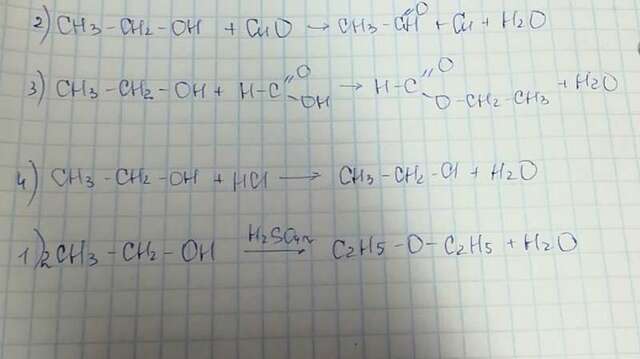 2) CH3-CH2-OH + CuO → CH3-CH=O + Cu + H2O
3) CH3-CH2-OH + H-C(=O)OH → H-C(=O)O-CH2-CH3 + H2O
4) CH3-CH2-OH + HCl → CH3-CH2-Cl + H2O
1) 2CH3-CH2-OH H2SO4 → C2H5-O-C2H5 + H2O